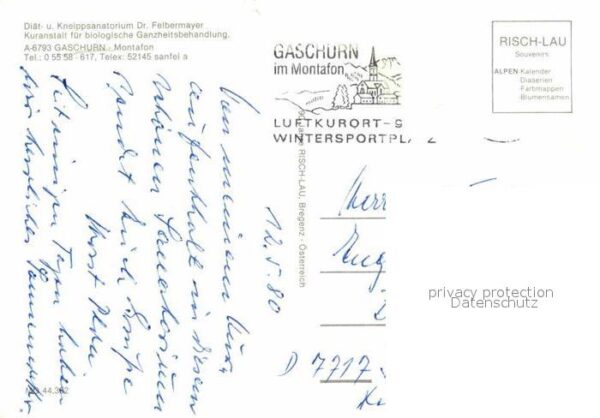 Diät- u. Kneippsanatorium Dr. Felbermayer
Kuranstalt für biologische Ganzheitsbehandlung.
A-6793 GASCHURN - Montafon
Tel.: 0 55 58 - 617, Telex: 52145 sanfel a
GASCHURN
im Montafon
LUFTKURORT-
WINTERSPORTPL
RISCH-LAU
Souvenirs
ALPEN-Kalender
-Diaserien
-Farbmappen
-Blumensamen
RISCH-LAU, Bregenz - Österreich
12.5.80
Von meinem Kur-
aufenthalt in diesem
schönen Sanatorium
sendet Euch Grüße
Seit einigen Tagen haben
wir herrliches
Herr
D 7717
44.3
privacy protection
Datenschutz